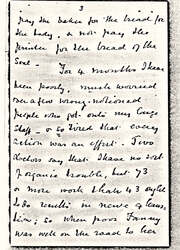 3
pay the baker for the bread for
the body, & not pay the
printer for the bread of the
Soul -
For 4 months I have
been poorly, much worried
over a few wrong notioned
people who got onto my Congo
Staff - & so tired that every
action was an effort. Two
doctors say that I have no sort
of organic trouble, but 73
& more work than 43 ought
to do results in nerve
; so when poor Fanny
was well on the road to her